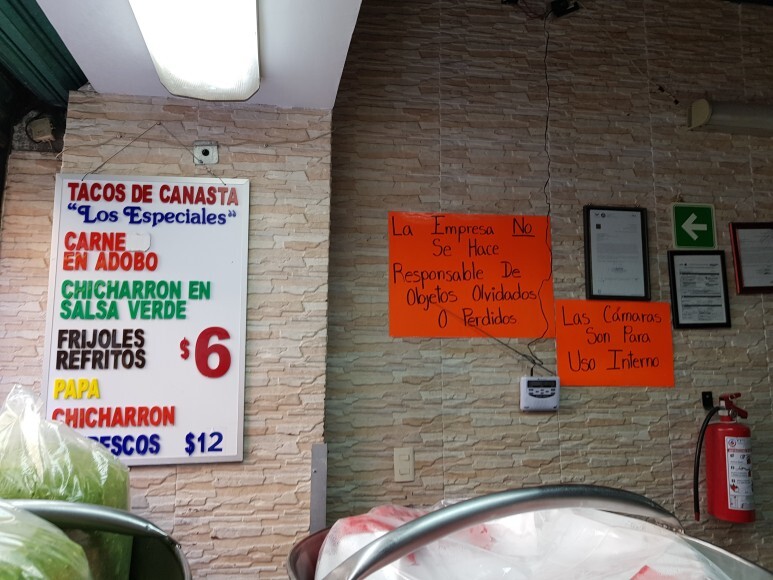 TACOS DE CANASTA
"Los Especiales"
CARNE
EN ADOBO
CHICHARRON EN
SALSA VERDE
FRIJOLES
REFRITOS
$6
PAPA
CHICHARRON
ESCOS $12
La Empresa No
Se Hace
Responsable De
Objetos Olvidados
O Perdidos
Las Cámaras
Son Para
Uso Interno